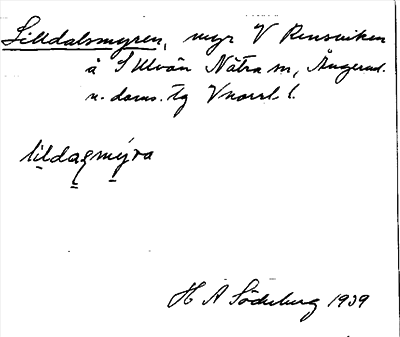 Lilldalsmyren, myr V Rensviken
å S Ulvön Nätra sn, Ångerml.
n. doms. tg Vnorrl. l.
lildaḷsmýra
H Å Söderberg 1939